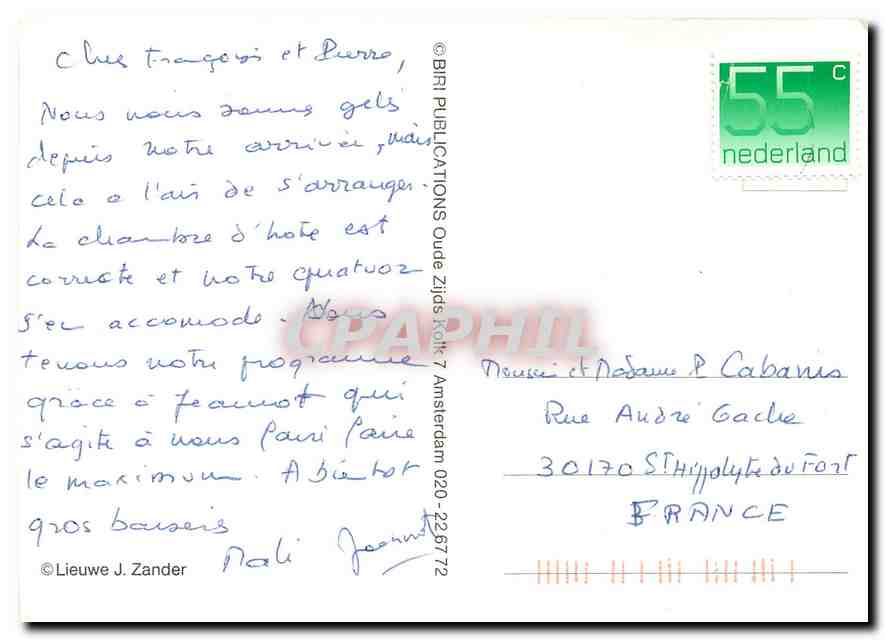 Chers François et Pierre,
Nous nous sommes gelés
depuis notre arrivée, mais
cela a l'air de s'arranger.
La chambre d'hôte est
correcte et notre quatuor
s'en accomode. Nous
tenons notre programme
grâce à Jeannot qui
s'agite à nous faire faire
le maximum. A bientot
gros baisers
Mali Jeannot
©Lieuwe J. Zander
© BIRI PUBLICATIONS Oude Zijds Kolk 7 Amsterdam 020 - 22 67 72
55 c
nederland
CPAPHIL
Monsieur et Madame P Cabanis
Rue André Gache
30170 St Hippolyte du Fort
FRANCE